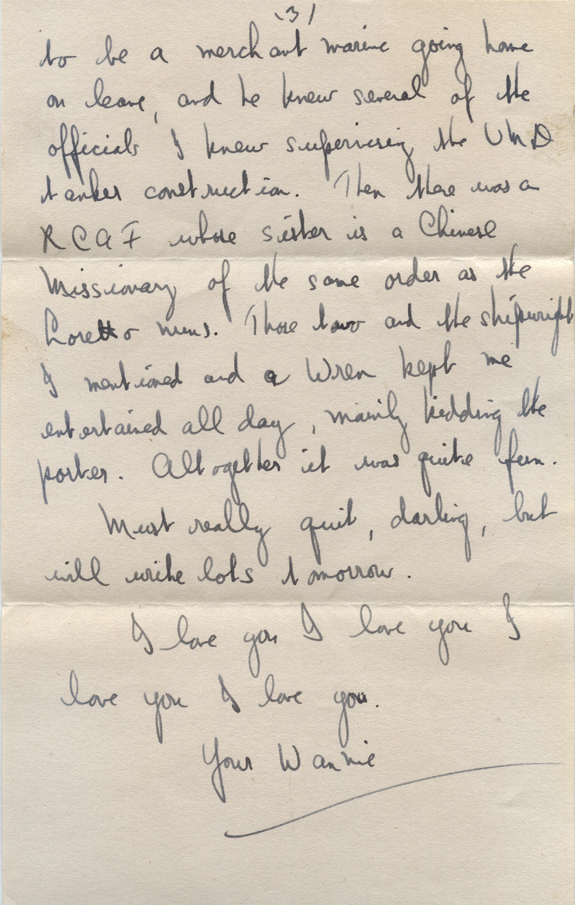 (3)
to be a merchant marine going home
on leave, and he knew several of the
officials I knew supervising the
tanker construction. Then there was a
RCAF whose sister is a Chinese
Missionary of the same order as the
Loretto nuns. Those two and the shipwright
I mentioned and a Wren kept me
entertained all day, mainly kidding the
porter. Altogether it was quite fun.
Must really quit, darling, but
will write lots tomorrow.
I love you I love you I
love you I love you.
Your Wannie